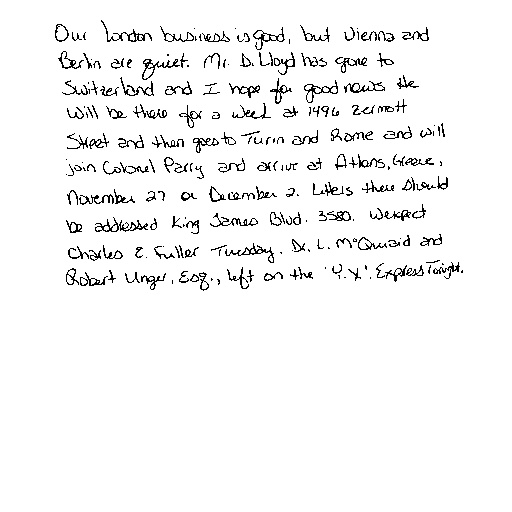 Our London business is good, but Vienna and
Berlin are quiet. Mr. D. Lloyd has gone to
Switzerland and I hope for good news. He
will be there for a week at 1496 Zermott
Street and then goes to Turin and Rome and will
join Colonel Parry and arrive at Athens, Greece,
November 27 or December 2. Letters there should
be addressed King James Blvd. 3580. We expect
Charles E. Fuller Tuesday. Dr. L. McQuaid and
Robert Unger, Esq., left on the 'Y.X'. Express Tonight.